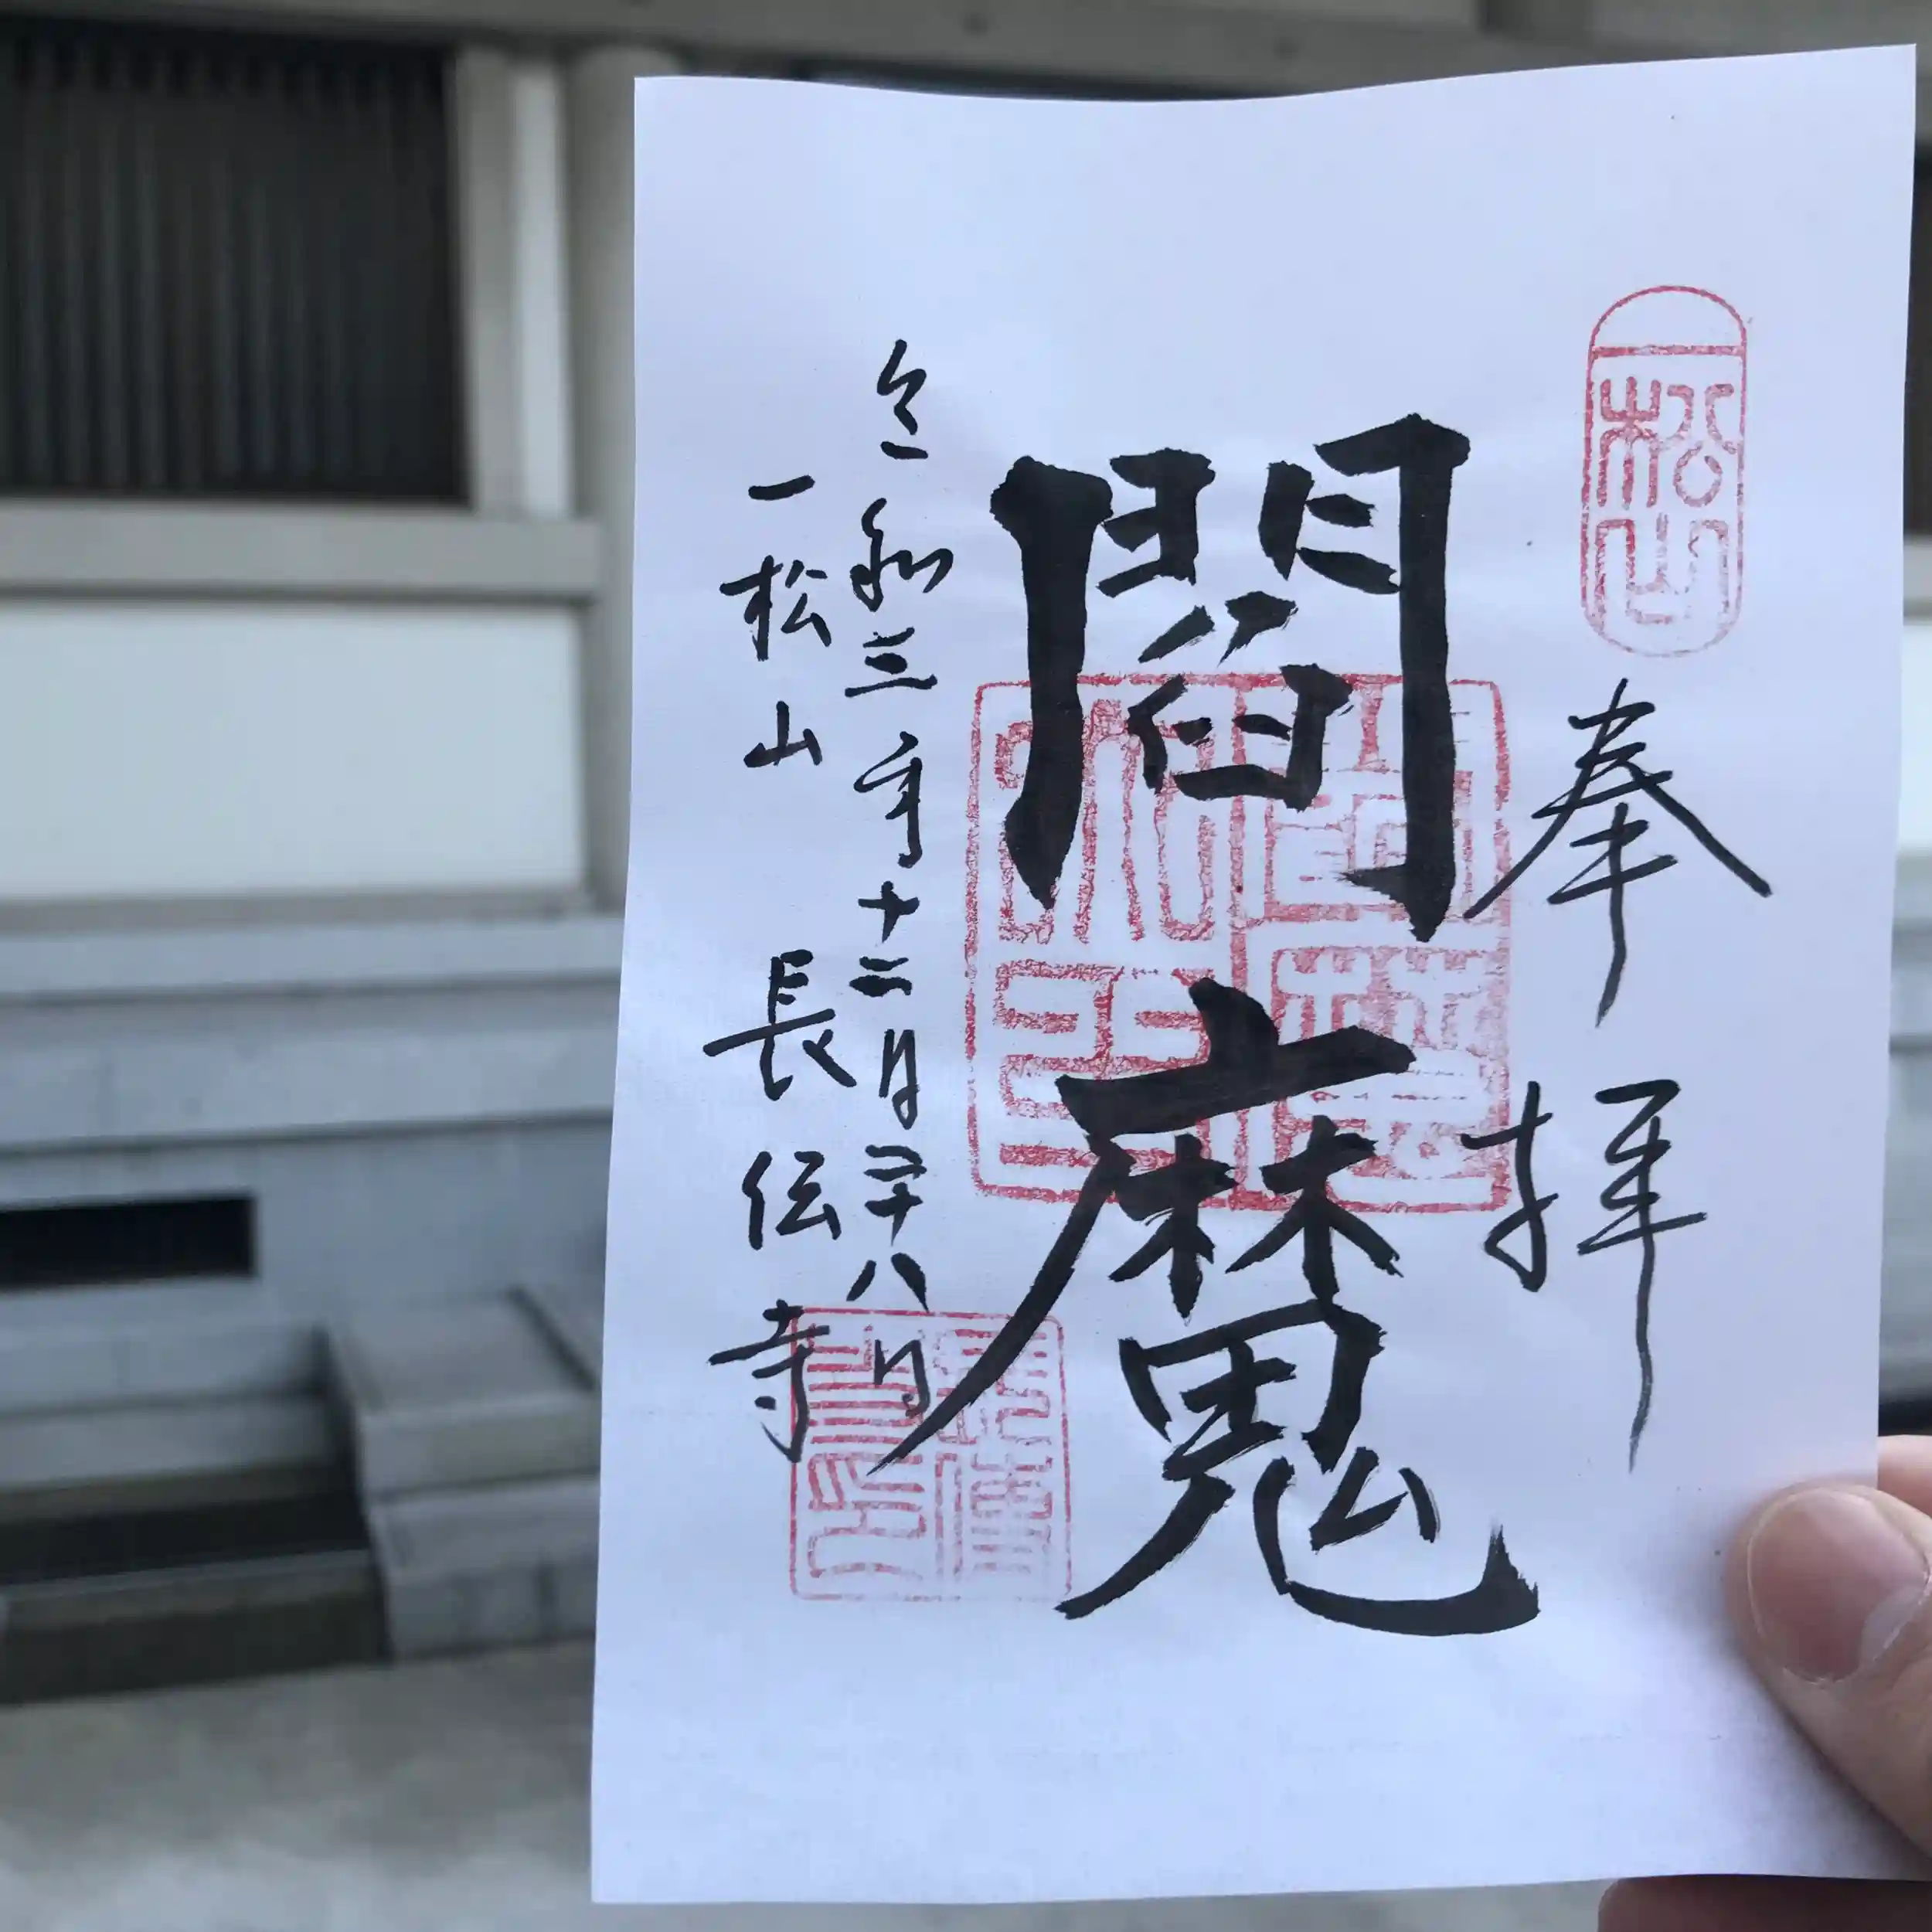 奉拝
閻魔
令和三年十二月二十八日
一松山 長伝寺
一松山
長傳寺印